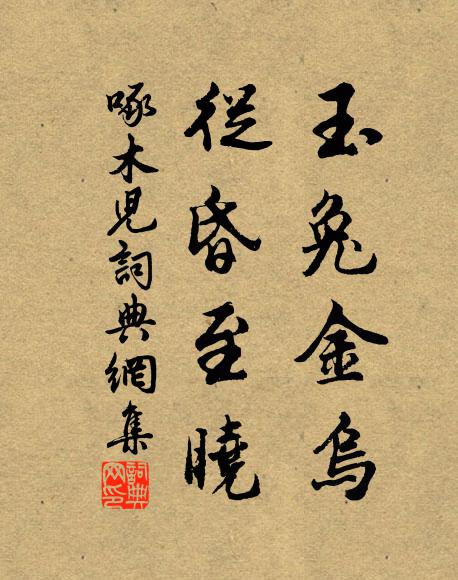 玉兔金烏
從昏至曉
啄木兒詞典網集
詞典網印